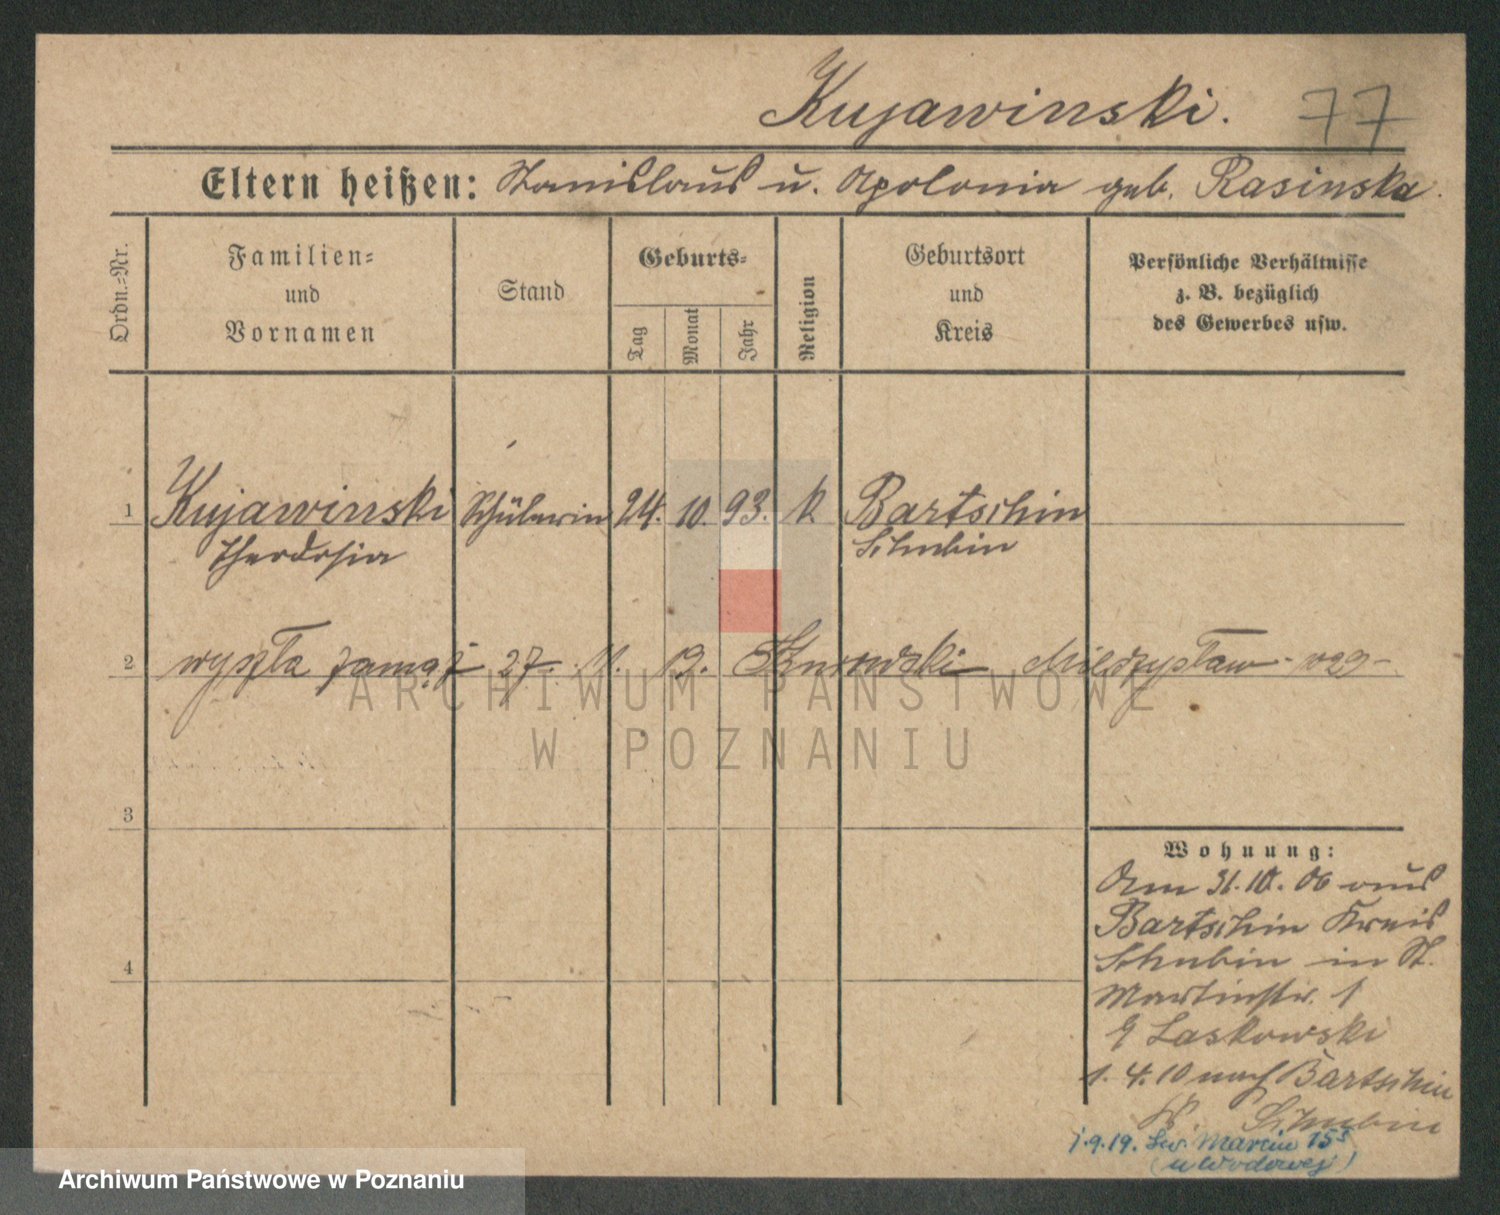 Kujawinski. 77
Eltern heißen: Stanislaus u. Apolonia geb. Rasinska.
Ordn.=Nr.
Familien=
und
Vornamen
Stand
Geburts=
Tag
Monat
Jahr
Religion
Geburtsort
und
Kreis
Persönliche Verhältnisse
z. B. bezüglich
des Gewerbes usw.
1 Kujawinski Schülerin 24. 10. 93. k Bartschin
Theodosia Schubin
2 wyszła zamąż 27. 11. 19. Mieczysław
3
4
Wohnung:
Am 31.10.06 aus
Bartschin Kreis
Schubin in St.
Martinstr. 1
Laskowski
1.4.10 nach Bartschin
Kr. Schubin
1.9.19. Św. Marcin 15
(u Wodowej)
ARCHIWUM PAŃSTWOWE
W POZNANIU
Archiwum Państwowe w Poznaniu